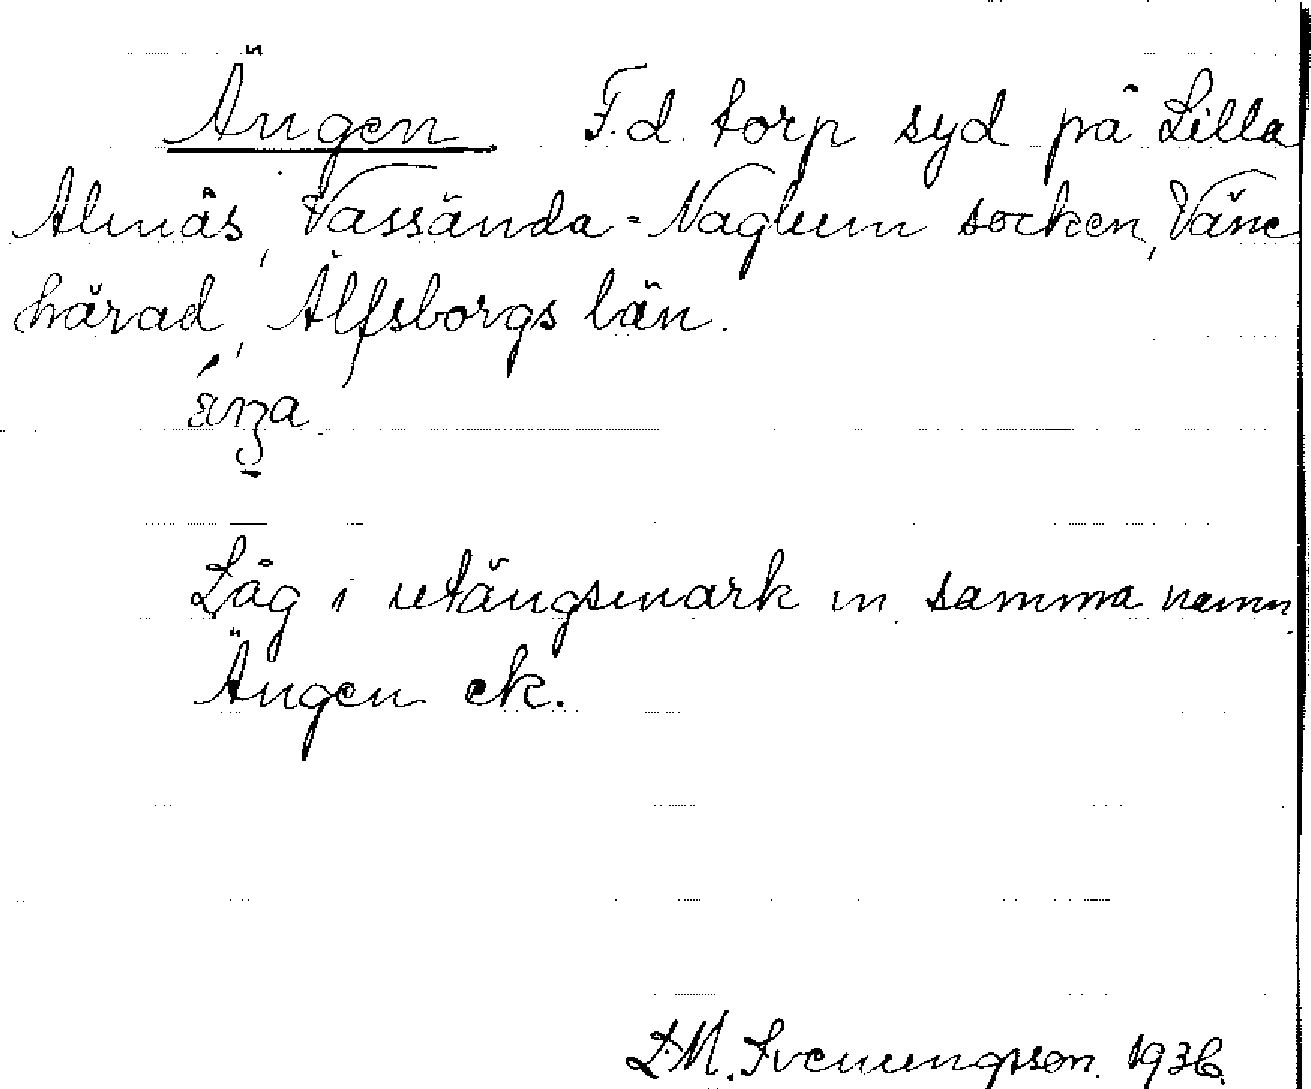 Ängen F.d. torp syd på Lilla
Almås, Vassända-Naglum socken, Väne
härad, Älfsborgs län.
Låg i utängsmark m. samma namn.
Ängen ek.
D.M. Svenungsson. 1936.